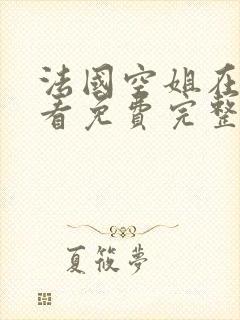 法國空姐在
看免費完整
夏筱夢